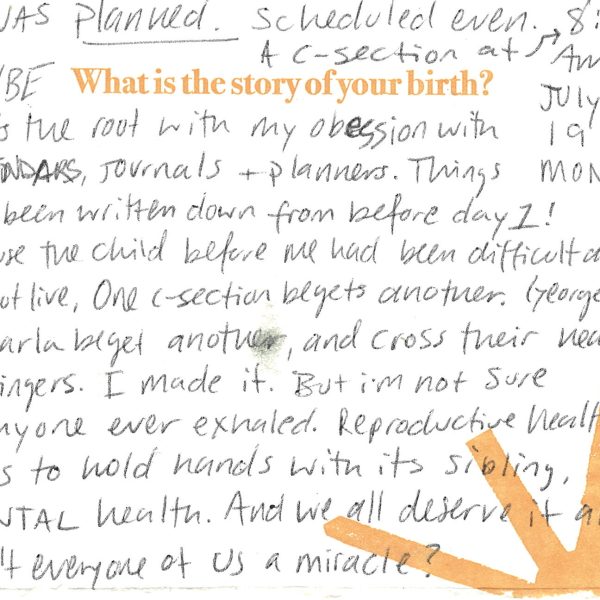 WAS planned. Scheduled even. 8:
A C-section at AM
YBE What is the story of your birth? JULY
s the root with my obession with 19
ENDARS, journals + planners. Things MON
been written down from before day 1!
use the child before me had been difficult a
ot live, One c-section begets another. George
arla beget another, and cross their hea
ingers. I made it. But i'm not sure
nyone ever exhaled. Reproductive health
s to hold hands with its sibling,
ENTAL health. And we all deserve it a
't everyone of us a miracle?